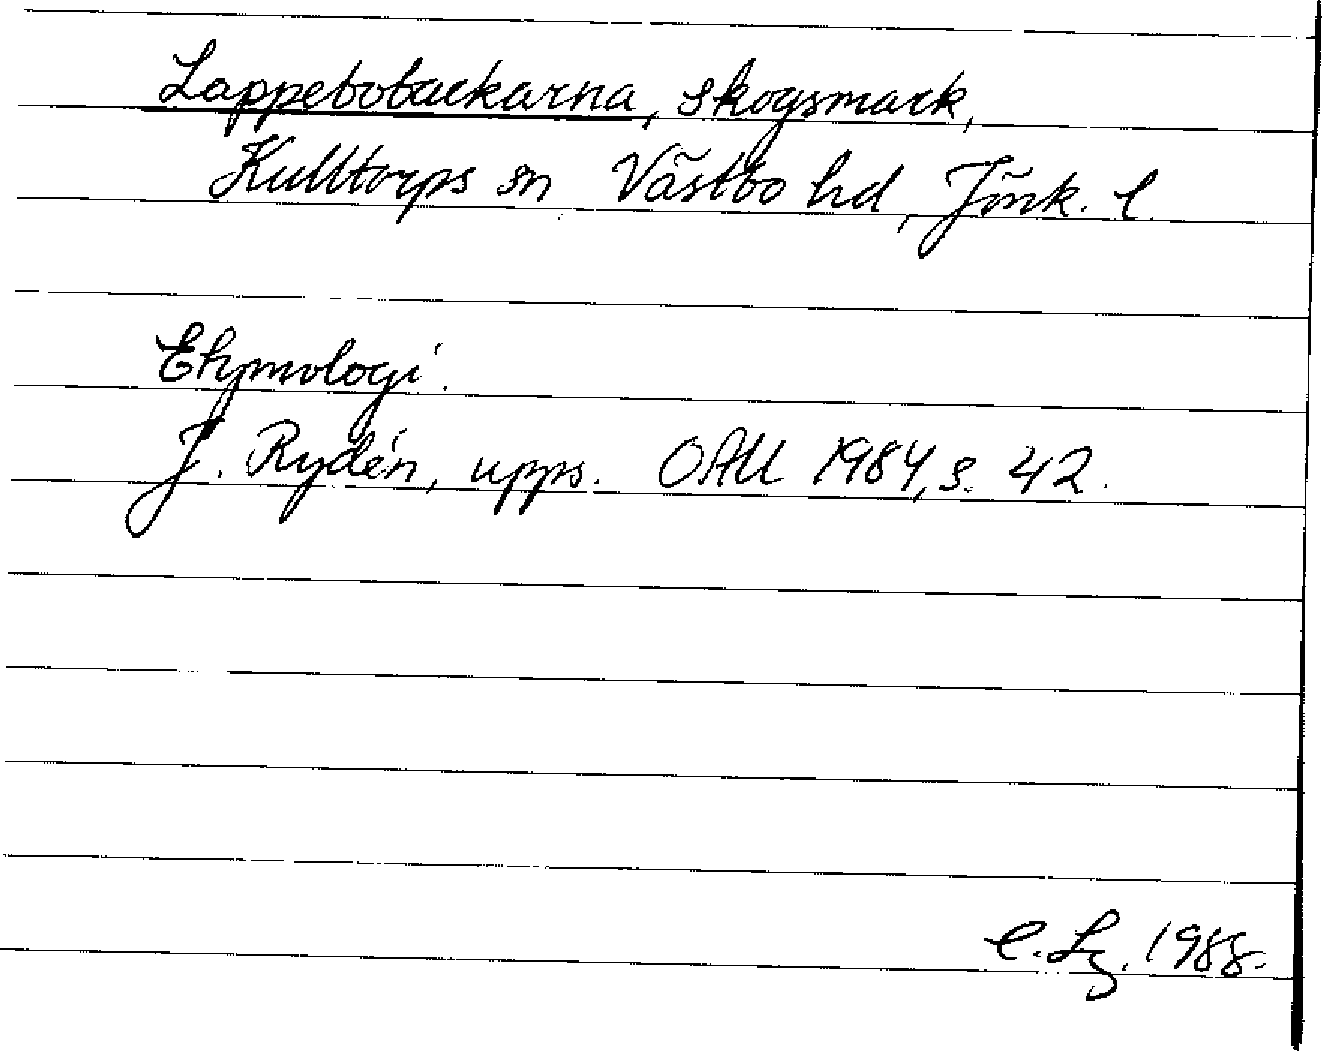 Lappebobackarna, skogsmark,
Kulltorps sn Västbo hd, Jönk. l.
Etymologi.
J. Rydén, upps. OAU 1984, s. 42.
C. Lg. 1988.